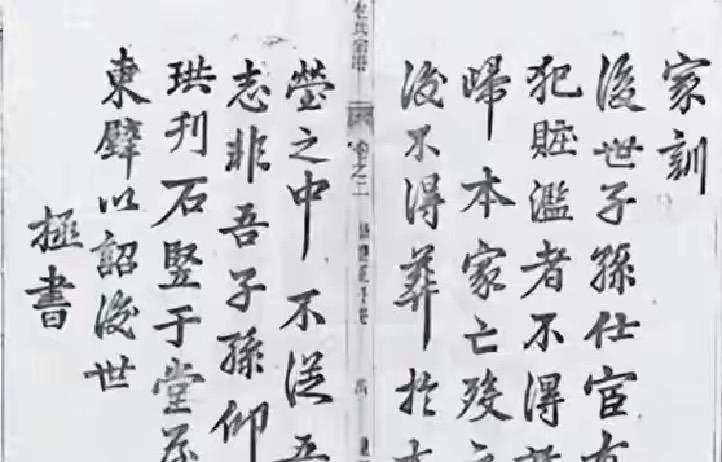 家訓
後世子孫仕宦有
犯賍濫者不得
歸本家亡殁
後不得葬於
包氏宗譜
卷之二
塋之中不從吾
志非吾子孫仰
珙刊石竪于堂屋
東壁以詔後世
拯書